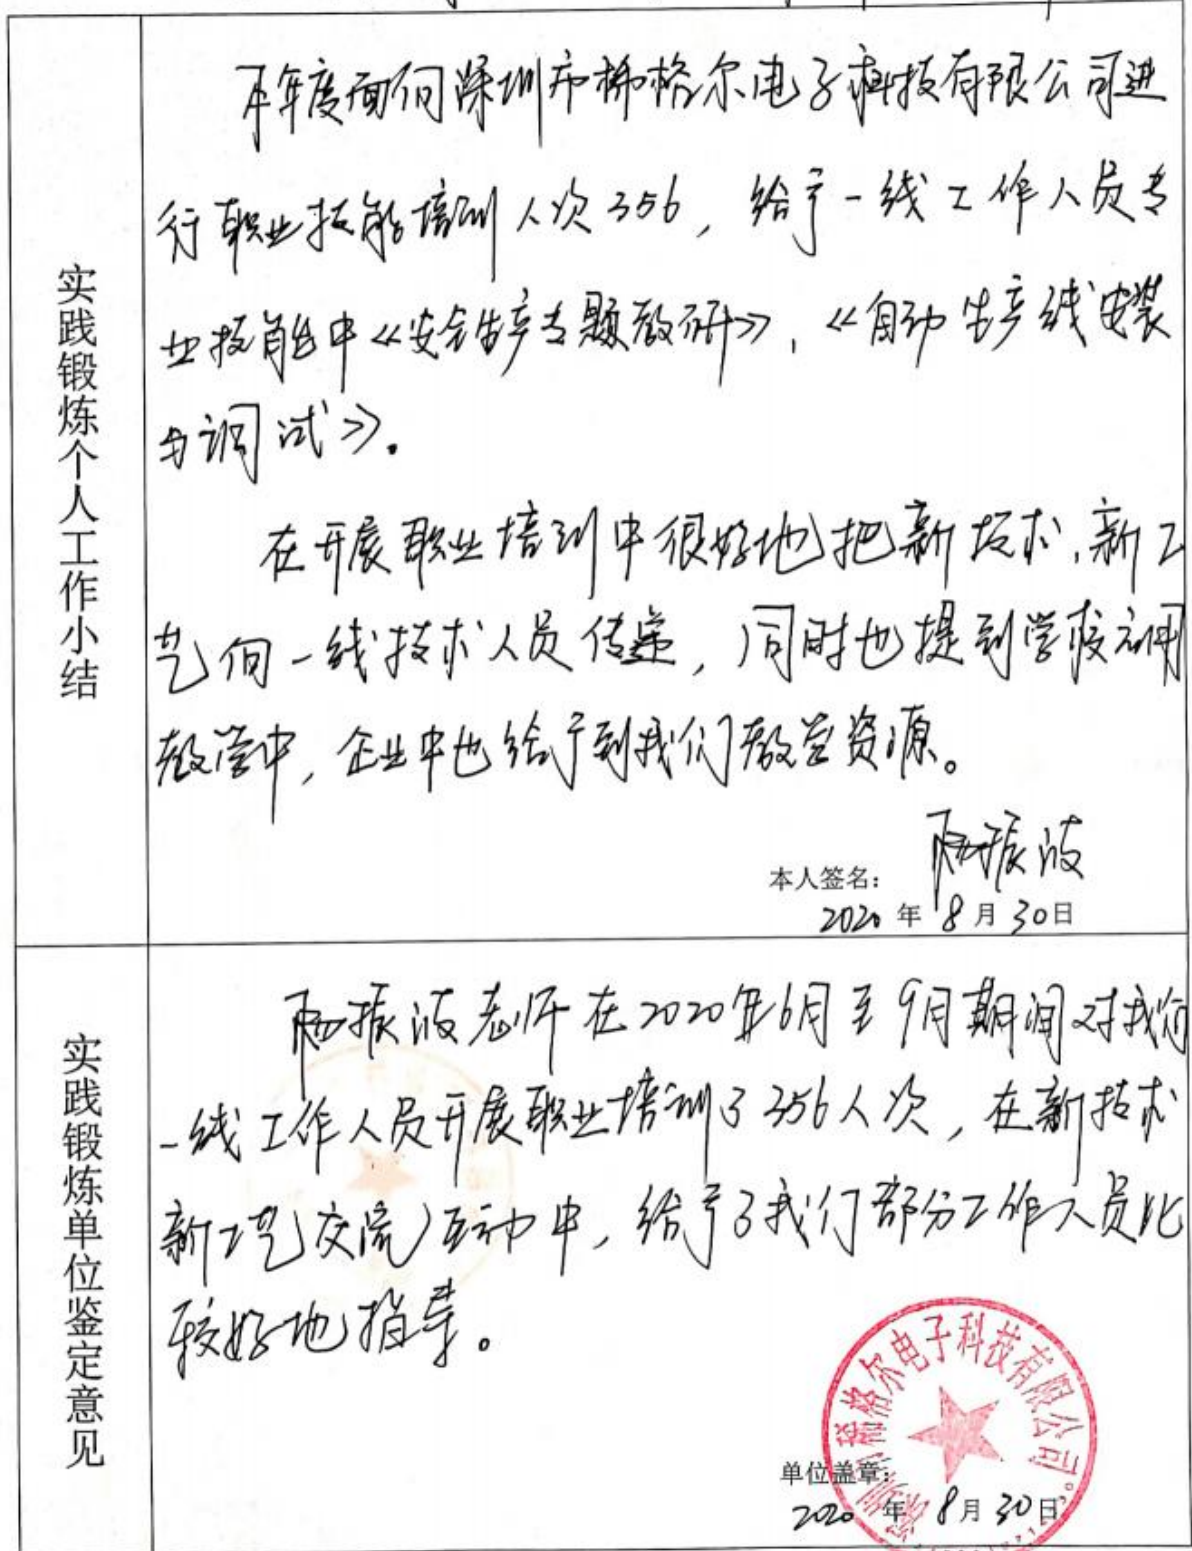 实践锻炼个人工作小结
本年度面向深圳市稀格尔电子科技有限公司进
行职业技能培训人次356，给予一线工作人员专
业技能中《安全生产专题教研》，《自动生产线安装
与调试》。
在开展职业培训中很好地把新技术，新工
艺向一线技术人员传递，同时也提到学校
教学中，企业中也给予到我们教学资源。
本人签名：
振波
2020年8月30日
实践锻炼单位鉴定意见
振波老师在2020年6月至9月期间对我们
一线工作人员开展职业培训了356人次，在新技术
新工艺交流互动中，给予了我们部分工作人员比
较好地指导。
格尔电子科技有限公司
单位盖章：
2020年8月30日